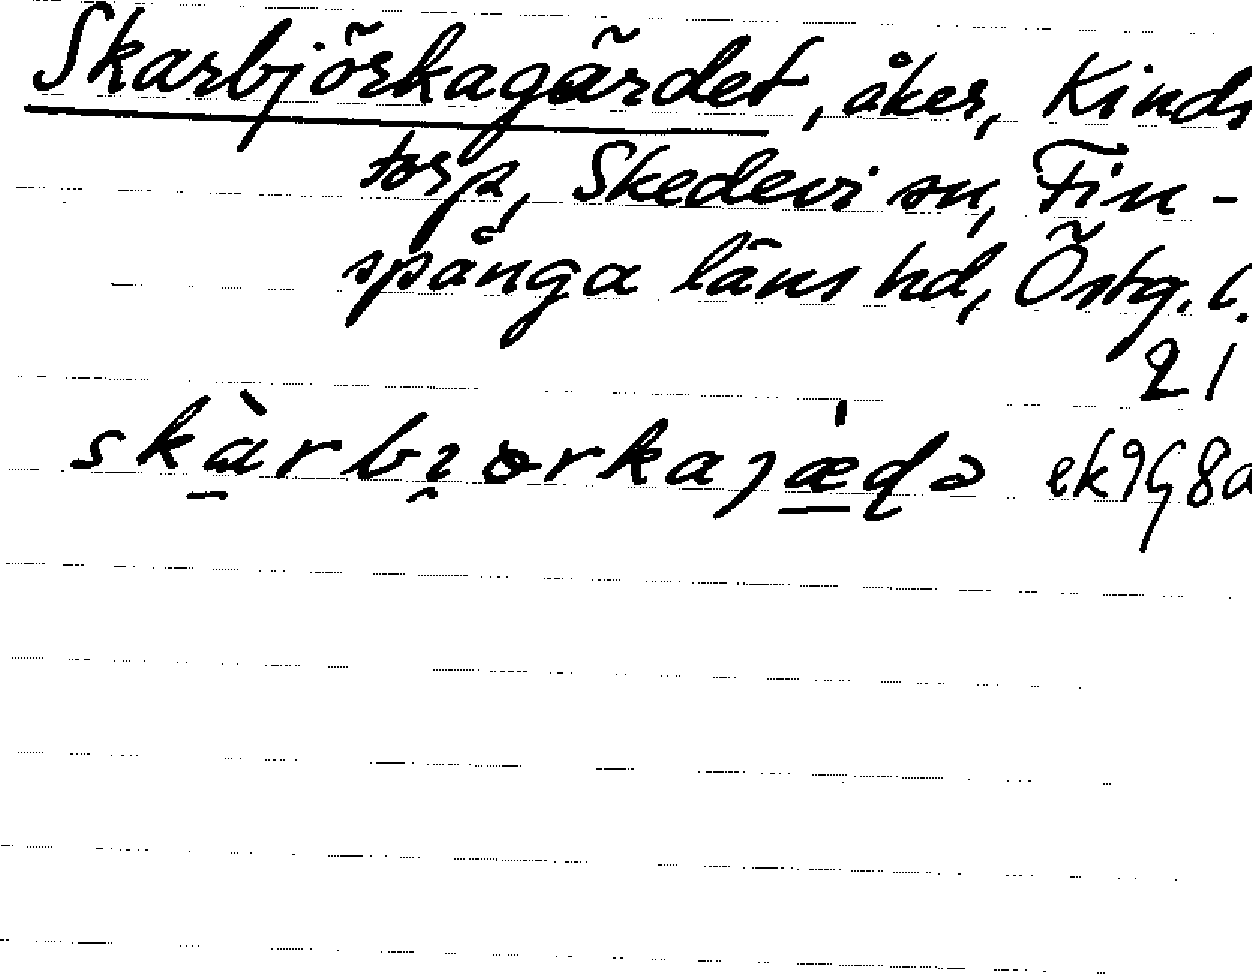 Skarbjörkagärdet, åker, Kinds
torp, Skedevi sn, Fin-
spånga läns hd, Östg. l.
21
skàrbi̯ɔrkaȷæ̀ɖə